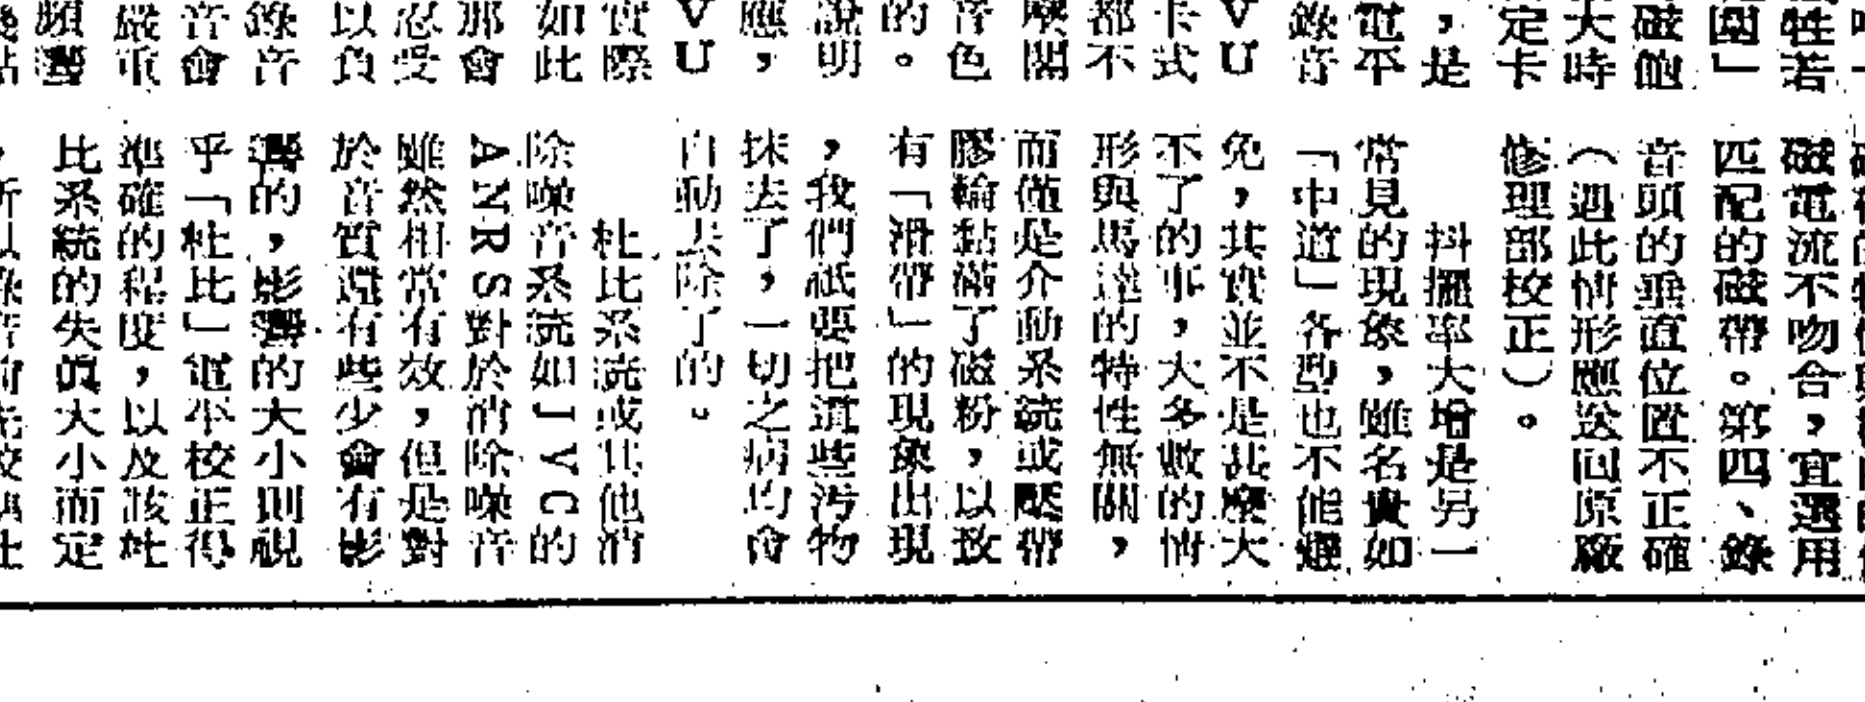 牲若
圍」
磁飽
大時
定卡
，是
電平
錄音
VU
卡式
都不
麼關
音色
的。
說明
應，
VU
實際
如此
那會
忍受
以負
錄音
音會
嚴重
頻響
磁電流不吻合，宜選用
匹配的磁帶。第四、錄
音頭的垂直位置不正確
（遇此情形應送回原廠
修理部校正）。
抖擺率大增是另一
常見的現象，雖名貴如
「中道」各型也不能避
免，其實並不是甚麼大
不了的事，大多數的情
形與馬達的特性無關，
而僅是介動系統或壓帶
膠輪黏滿了磁粉，以致
有「滑帶」的現象出現
，我們祇要把這些污物
抹去了，一切之病均會
自動去除了的。
杜比系統或其他消
除噪音系統如JVC的
ANRS對於消除噪音
雖然相當有效，但是對
於音質還有些少會有影
響的，影響的大小則視
乎「杜比」電平校正得
準確的程度，以及該杜
比系統的失真大小而定